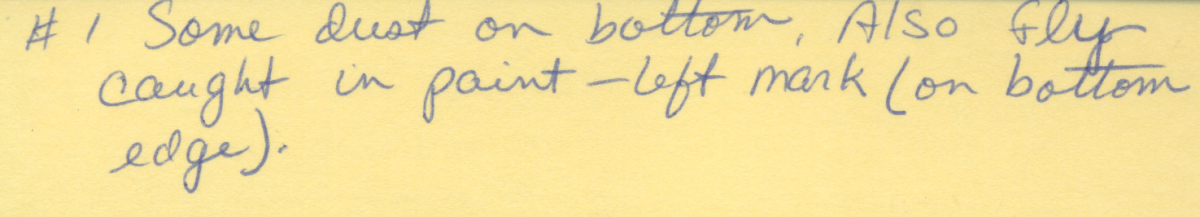 # 1 Some dust on bottom, Also fly
caught in paint - left mark (on bottom
edge).